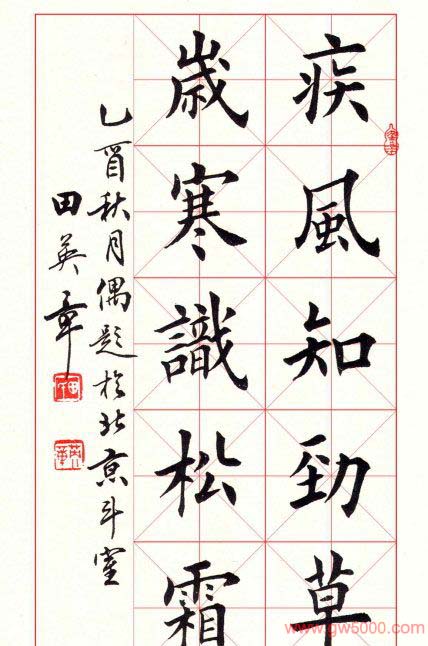 疾風知勁草
歲寒識松霜
乙酉秋月偶題於北京斗室
田英章
www.gw5000.com